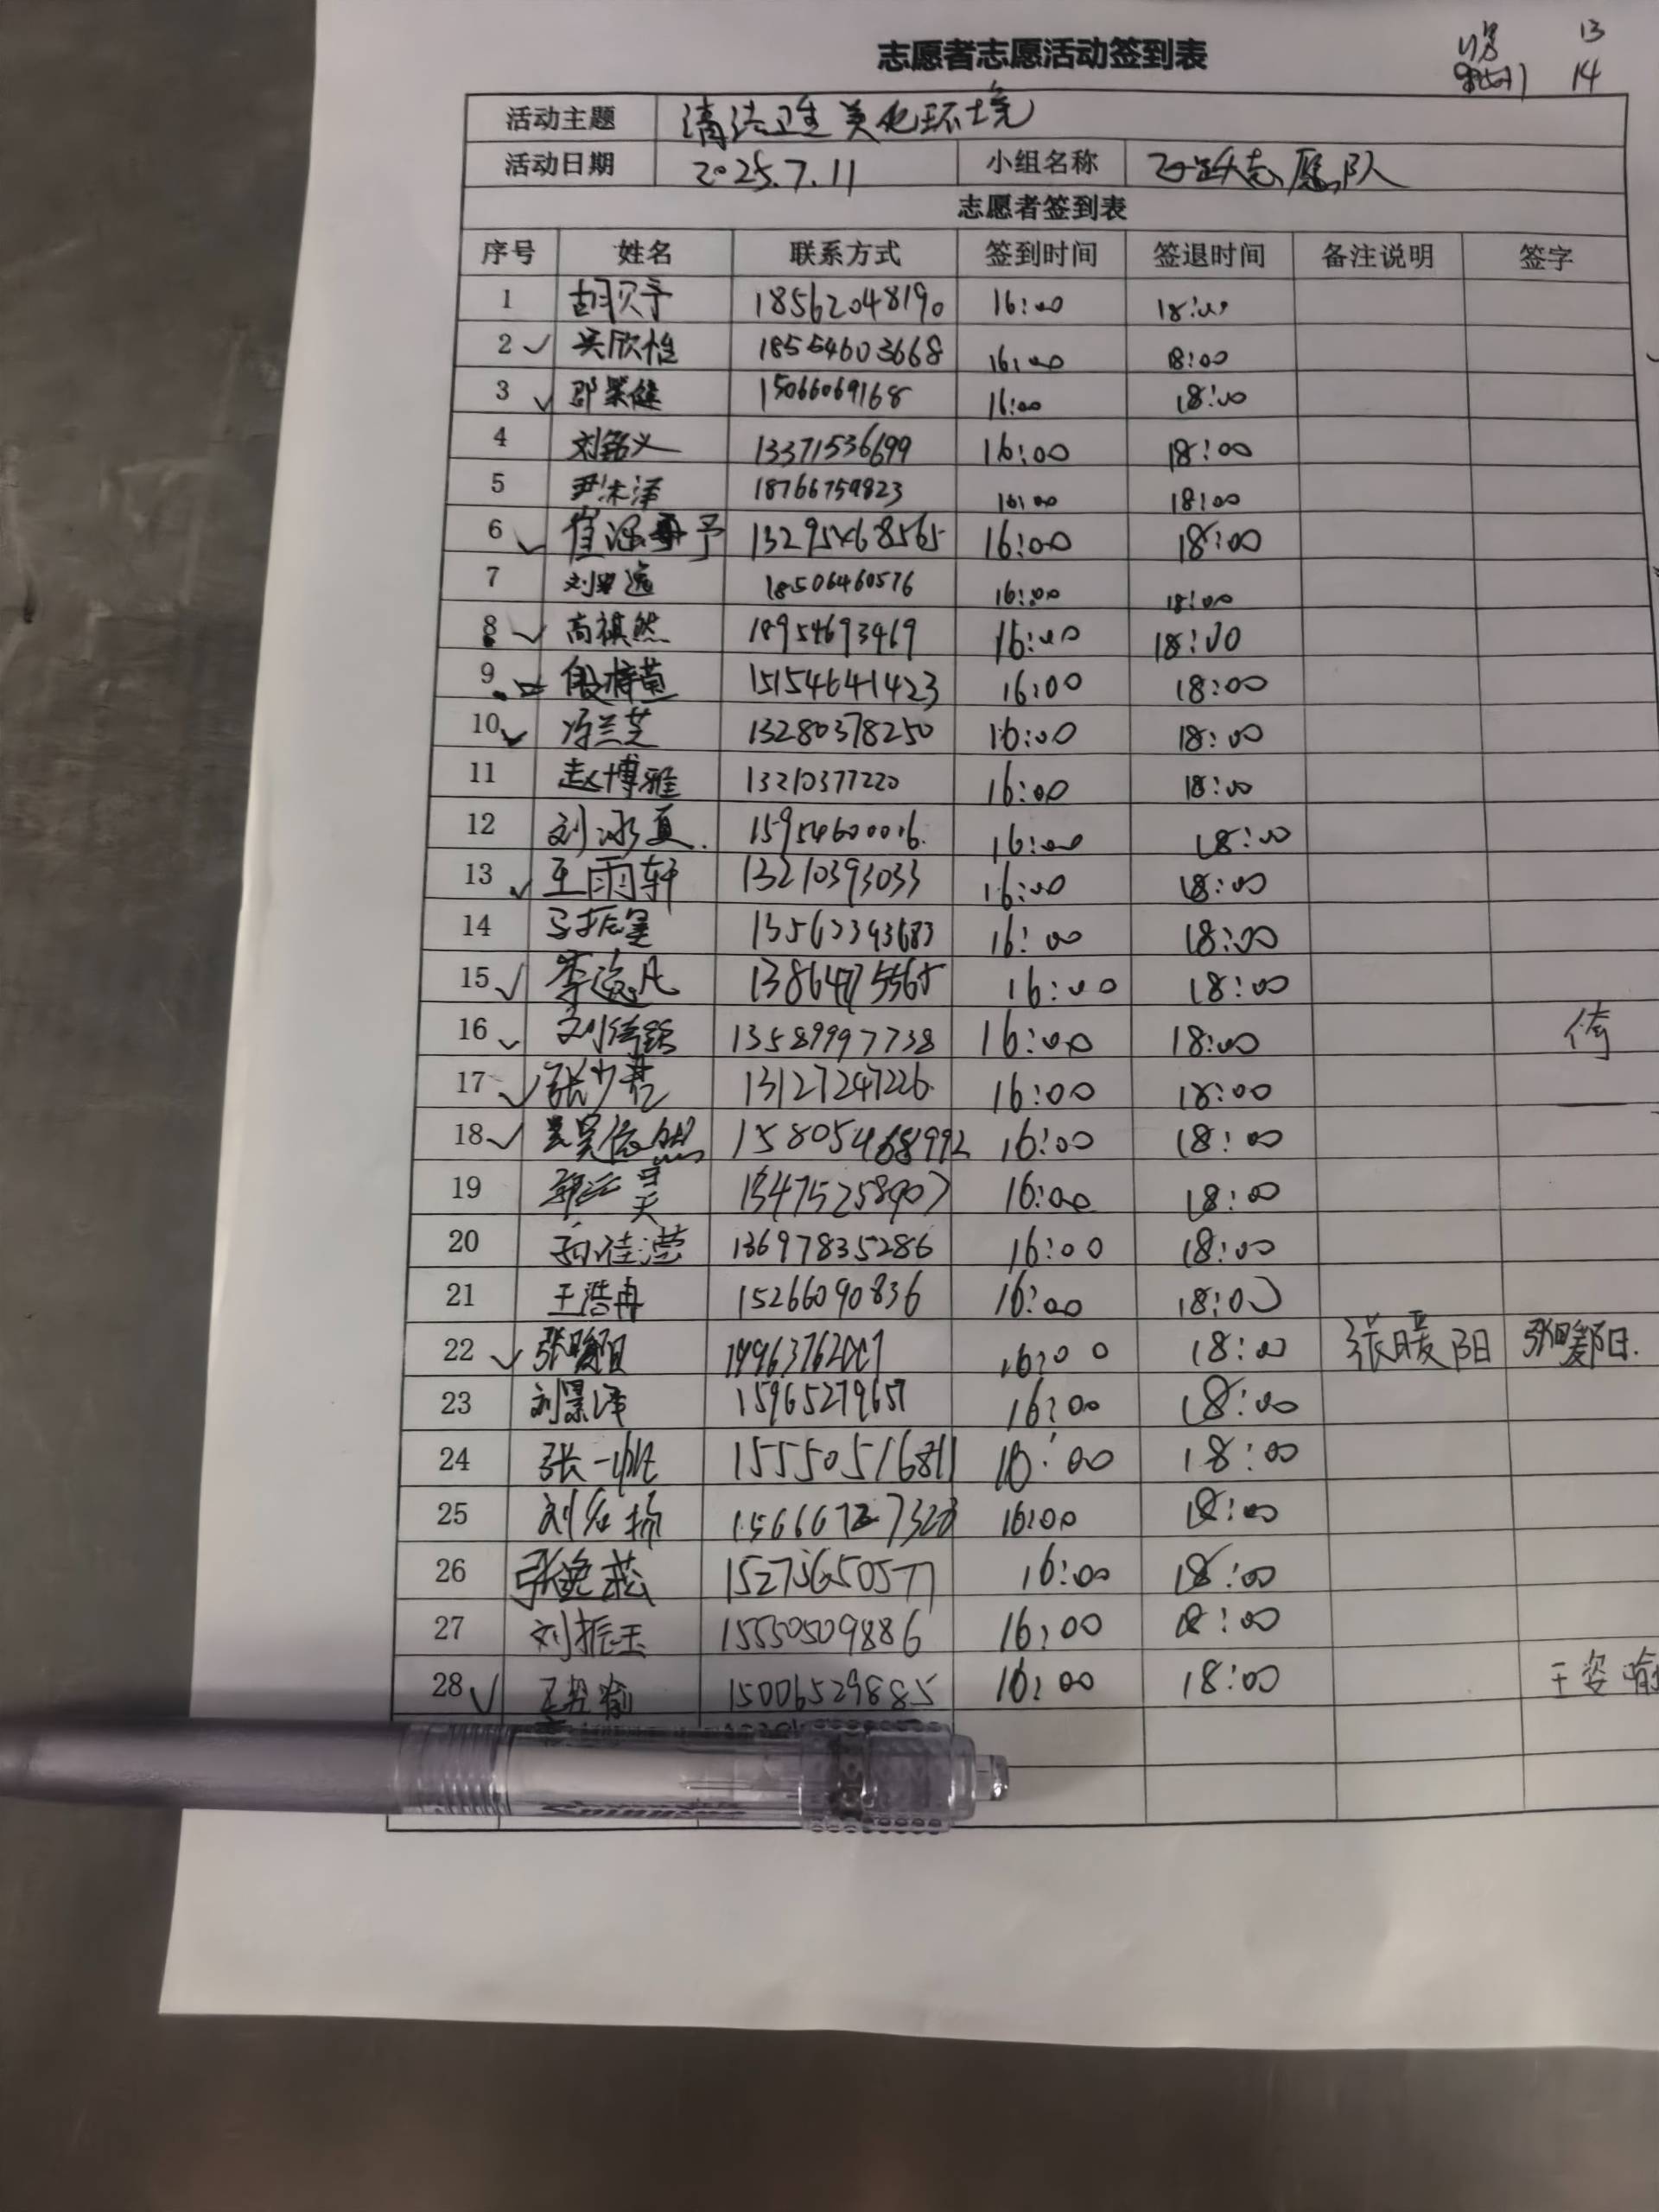 志愿者志愿活动签到表
13
14
活动主题 清洁卫生 美化环境
活动日期 2025.7.11 小组名称 飞跃志愿队
志愿者签到表
序号 姓名 联系方式 签到时间 签退时间 备注说明 签字
1 胡贝予 18562048190 16:00 18:00
2 吴欣怡 18554603668 16:00 18:00
3 15066069168 16:00 18:00
4 刘铭义 13371536699 16:00 18:00
5 尹沐泽 18766759823 16:00 18:00
6 崔涵予 16:00 18:00
7 刘 逸 18506460576 16:00 18:00
8 高祺然 18954693469 16:00 18:00
9 殷梓萱 15154641423 16:00 18:00
10 冯兰芝 13280378250 16:00 18:00
11 赵博雅 13210377220 16:00 18:00
12 刘冰夏 15954600016 16:00 18:00
13 王雨轩 13210393033 16:00 18:00
14 马振 16:00 18:00
15 李逸凡 16:00 18:00
16 刘倚 13589997738 16:00 18:00 倚
17 张少 13127247226 16:00 18:00
18 依然 16:00 18:00
19 16:00 18:00
20 孙佳滢 13697835286 16:00 18:00
21 王浩冉 15266090836 16:00 18:00
22 张暖阳 16:00 18:00 张暖阳 张暖阳
23 刘景泽 15965279657 16:00 18:00
24 张一帆 16:00 18:00
25 刘 扬 16:00 18:00
26 张逸菘 16:00 18:00
27 刘振玉 15550509886 16:00 18:00
28 王姿喻 15006529885 16:00 18:00 王姿喻